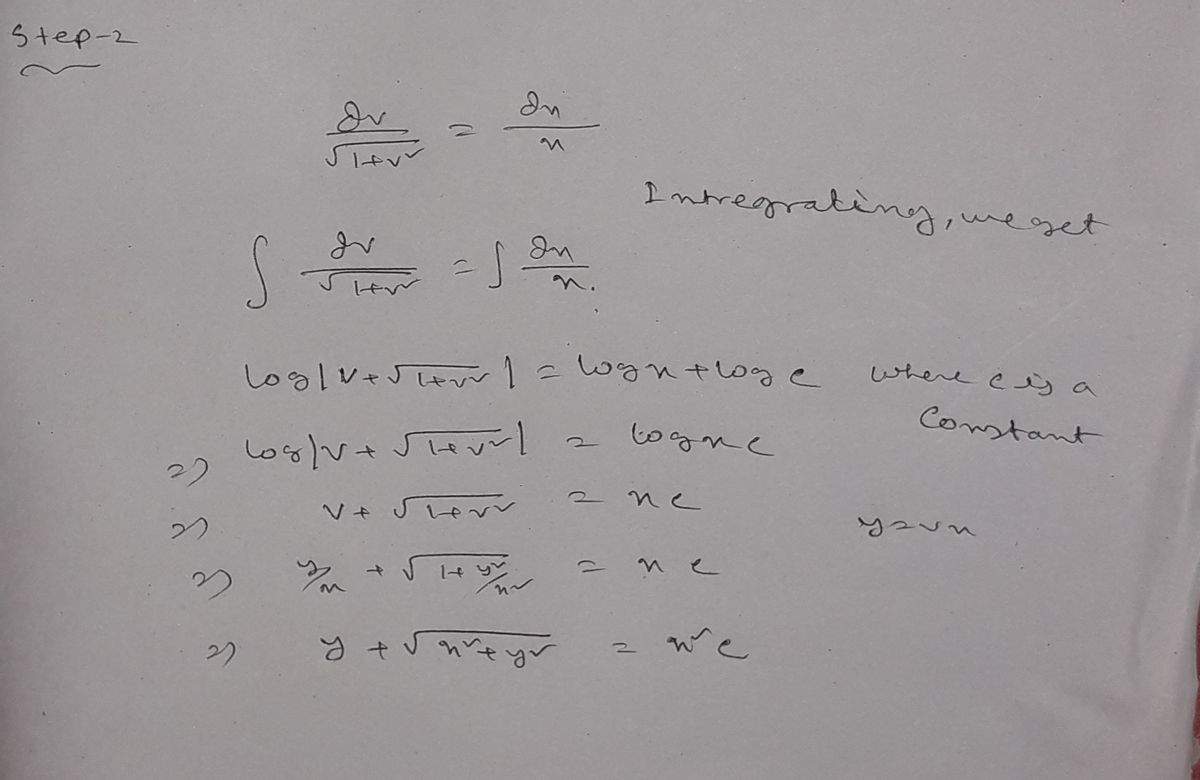 Step-2
∂v/√(1+v²) = ∂x/x
Intregrating, we get
∫ ∂v/√(1+v²) = ∫ ∂x/x.
log|v+√(1+v²)| = logx + logc where c is a
Constant
⇒ log|v+√(1+v²)| = logxc
⇒ v+√(1+v²) = xc
y=vx
⇒ y/x + √(1+y²/x²) = xc
⇒ y + √(x²+y²) = x²c